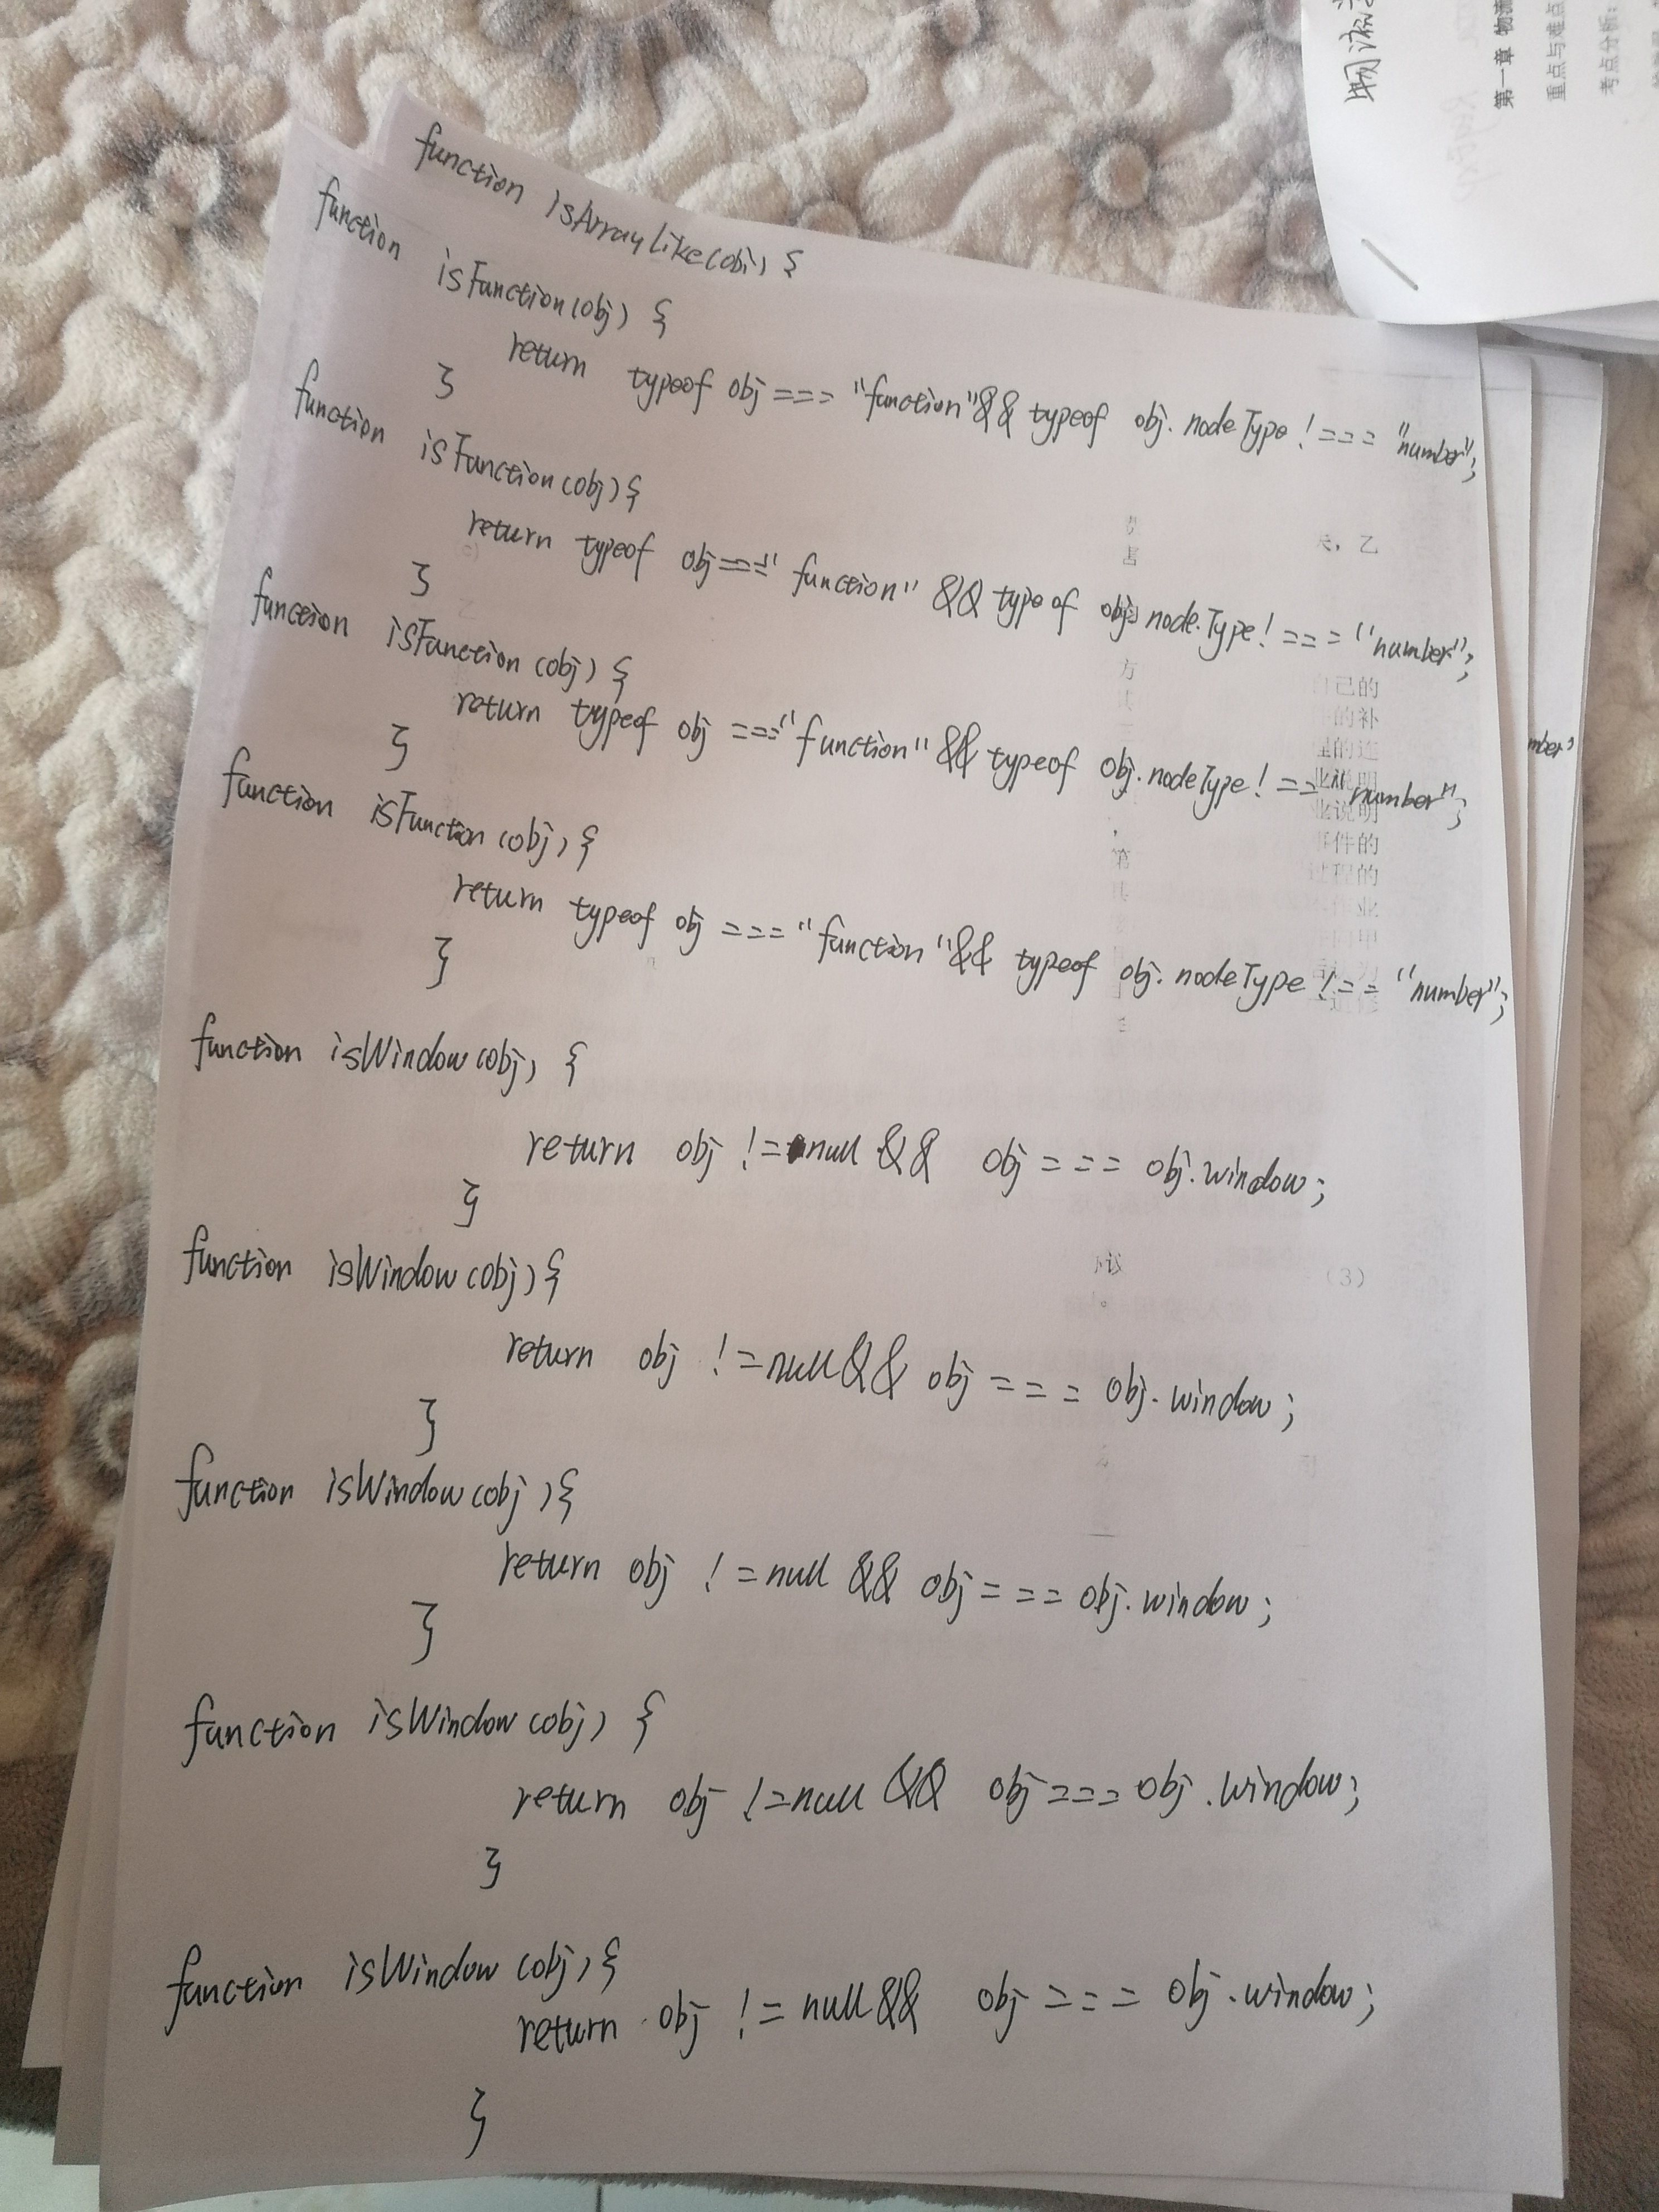 function isArrayLike(obj) {
function isFunction(obj) {
return typeof obj === "function"&& typeof obj.nodeType !=== "number";
}
function isFunction(obj){
return typeof obj==="function" && typeof obj.nodeType!==="number";
}
function isFunction(obj) {
return typeof obj ==="function" && typeof obj.nodeType!== number";
}
function isFunction(obj) {
return typeof obj === "function"&& typeof obj.nodeType !== "number";
}
function isWindow(obj) {
return obj !=null && obj === obj.window;
}
function isWindow(obj){
return obj !=null&& obj === obj.window;
}
function isWindow(obj){
return obj !=null && obj=== obj.window;
}
function isWindow(obj) {
return obj !=null && obj=== obj.window;
}
function isWindow(obj){
return obj != null&& obj === obj.window;
}
第一章 物流
重点与难点
考点分析:
天,乙
方
自己的
的补
业说明
件的
过程的
第
(3)